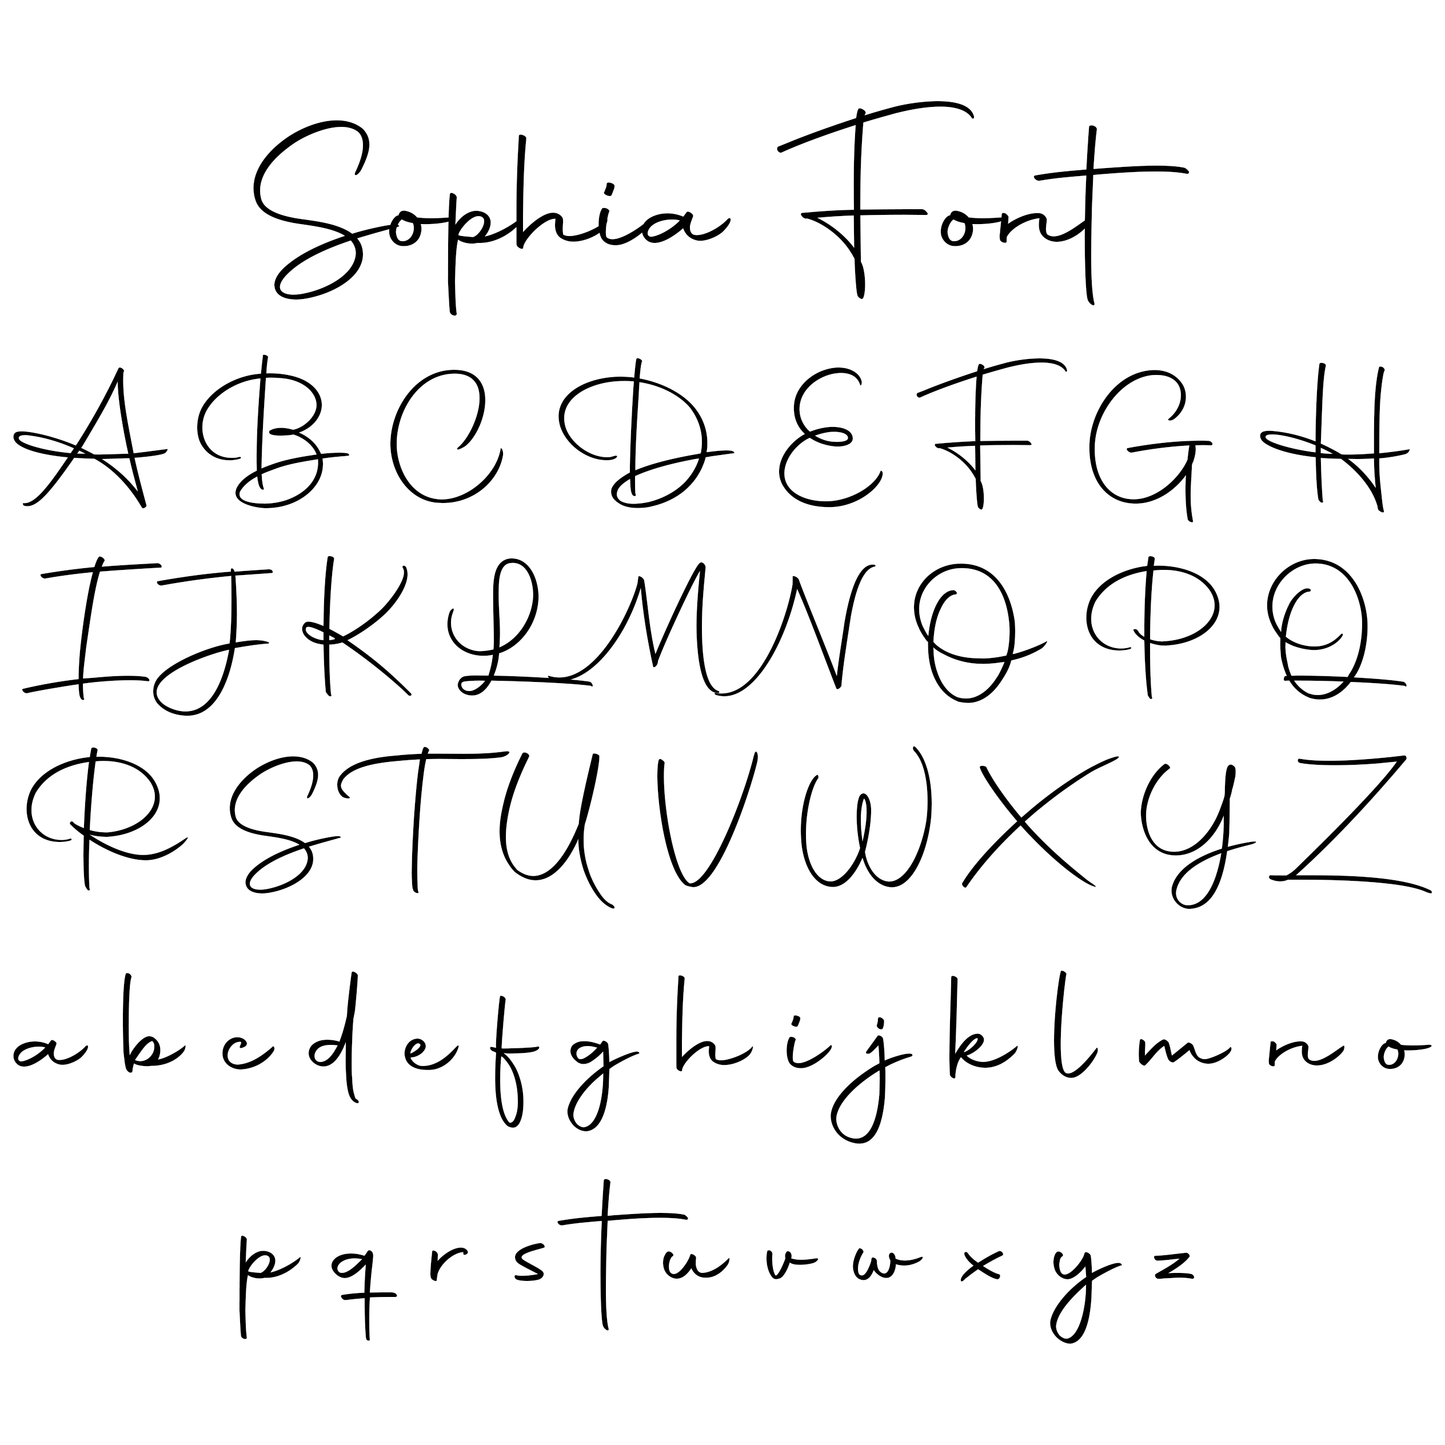 Sophia Font
A B C D E F G H
I J K L M N O P Q
R S T U V W X Y Z
a b c d e f g h i j k l m n o
p q r s t u v w x y z